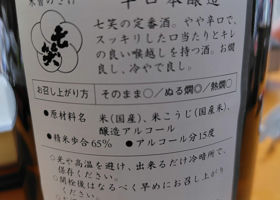 木曽のさけ
辛口本醸造
七笑
七笑の定番酒。やや辛口で、
スッキリした口当たりとキレ
の良い喉越しを持つ酒。お燗
良し、冷やで良し。
お召し上がり方 そのまま○/ぬる燗◎/熱燗○
●原材料名 米(国産)、米こうじ(国産米)、
醸造アルコール
●精米歩合65% ●アルコール分15度
○光や高温を避け、出来るだけ冷暗所で、
保管ください。
○開栓後はなるべく早めにお召し上がり
ください。